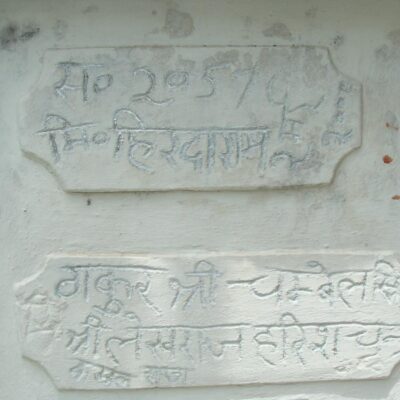 स० २०५७
मि० हिरदाराम
ठाकुर श्री चम्बेल सिं
श्री लेखराज हरिश चन्